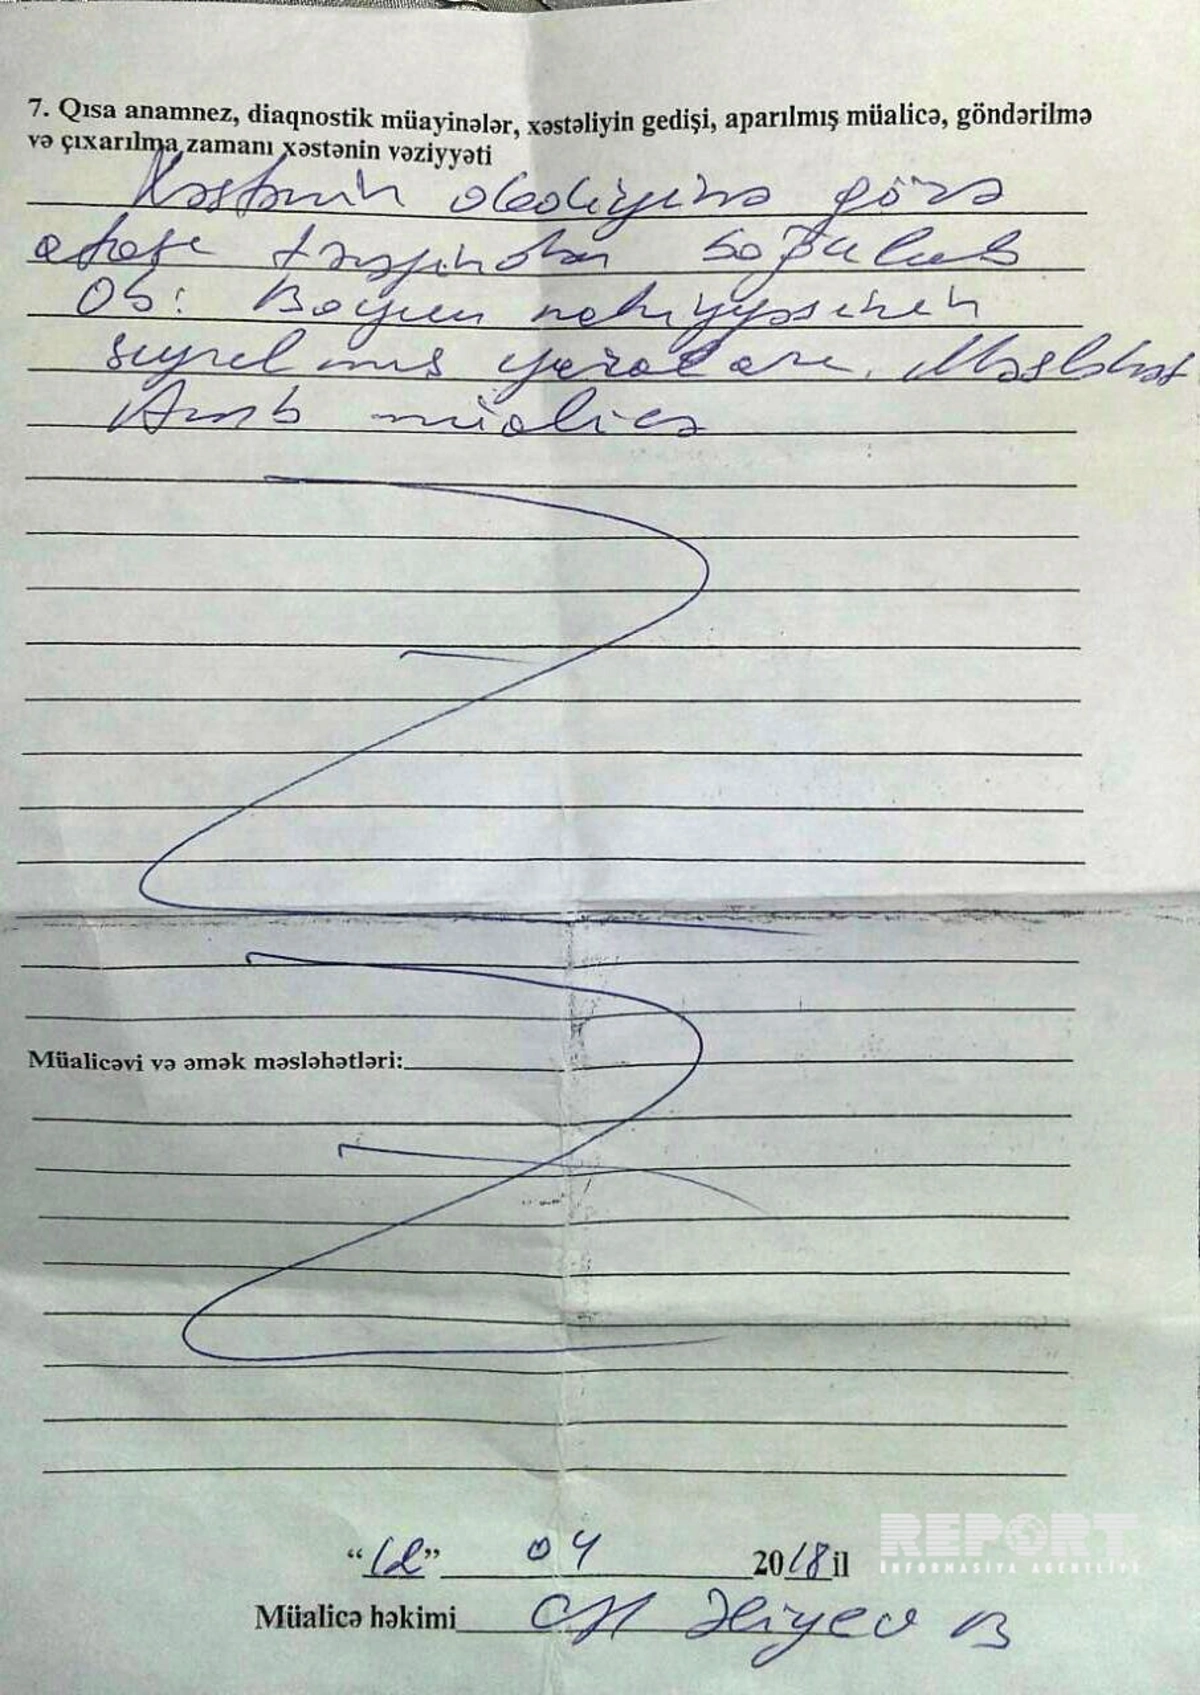 7. Qısa anamnez, diaqnostik müayinələr, xəstəliyin gedişi, aparılmış müalicə, göndərilmə
və çıxarılma zamanı xəstənin vəziyyəti
Xəstənin dediyinə görə
tərəfindən boğulub
Ob: Boyun nahiyyəsinin
sıyrılmış yaraları. Məsləhət
Amb müalicə
Müalicəvi və əmək məsləhətləri:
“12” 04 2018 il
REPORT
İNFORMASİYA AGENTLİYİ
Müalicə həkimi Əliyev B